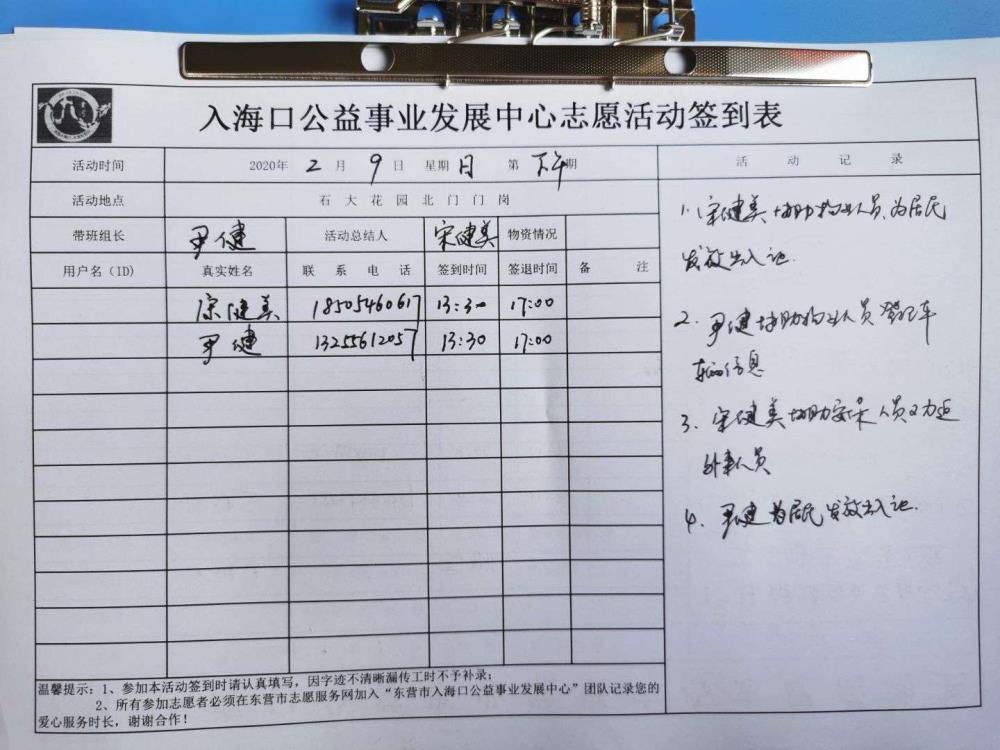 入海口公益事业发展中心志愿活动签到表
活动时间 2020年 2 月 9 日 星期 日 第 下午 期
活动地点 石大花园北门门岗
带班组长 尹健 活动总结人 宋健美 物资情况
用户名(ID) 真实姓名 联系电话 签到时间 签退时间 备注
宋健美 18505460617 13:30 17:00
尹健 13255612057 13:30 17:00
活动记录
1、宋健美协助物业人员为居民
发放出入证.
2. 尹健协助物业人员登记车
辆信息
3. 宋健美协助安保人员
外来人员
4. 尹健为居民发放出入证.
温馨提示:1、参加本活动签到时请认真填写,因字迹不清晰漏传工时不予补录;
2、所有参加志愿者必须在东营市志愿服务网加入“东营市入海口公益事业发展中心”团队记录您的
爱心服务时长,谢谢合作!